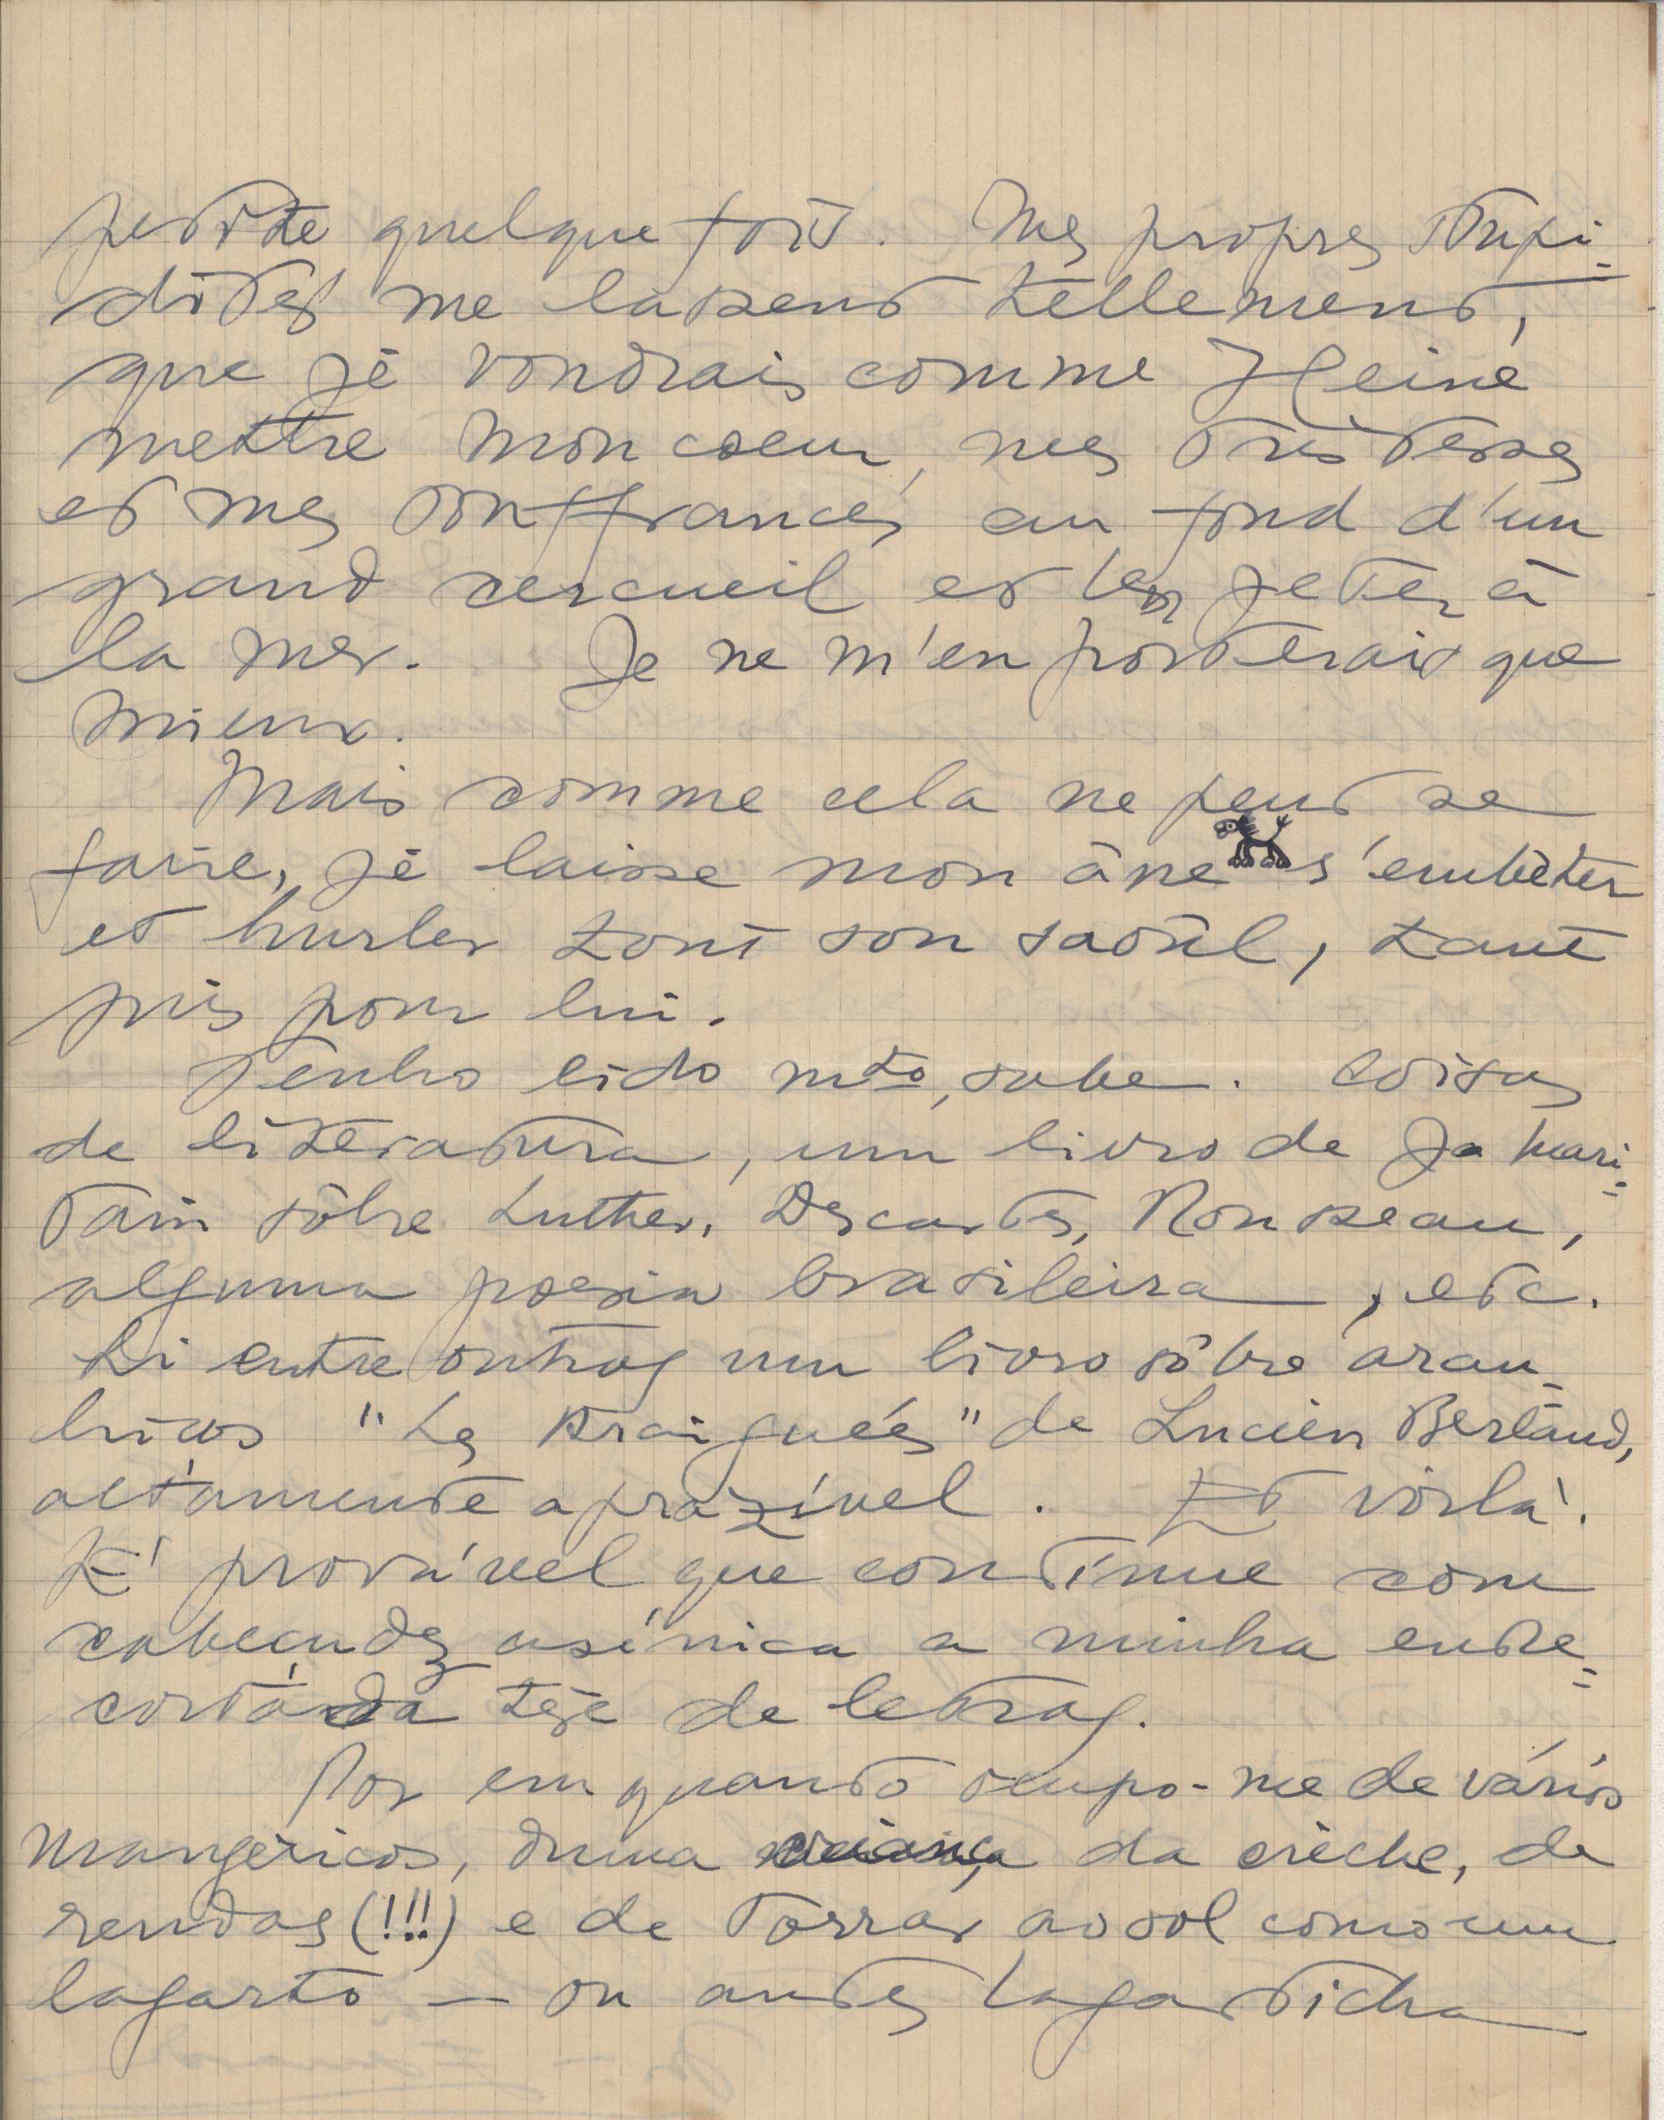 petite quelque fois. Mes propres stupi-
dités me lassent tellement,
que je voudrais comme Heine
mettre mon coeur, mes tristesses
et mes souffrances au fond d'un
grand cercueil et les jeter à
la mer. Je ne m'en porterais que
mieux.
Mais comme cela ne peut se
faire, je laisse mon âne s'embêter
et hurler tout son saoûl, tant
pis pour lui.
Tenho lido mto, sabe. Coisas
de literatura, um livro de Ja Mari-
tain sôbre Luther, Descartes, Rousseau,
alguma poesia brasileira, etc.
Li entre outras um livro sôbre aran-
hiços "Les Araignées" de Lucien Berland,
altamente aprazível. Et voilà.
É provável que continue com
cabeçudez asínica a minha entre-
cortada tese de letras.
Por em quanto ocupo-me de vários
mangericos, duma criança da crèche, de
rendas (!!!) e de torrar ao sol como um
lagarto — ou antes lagarticha